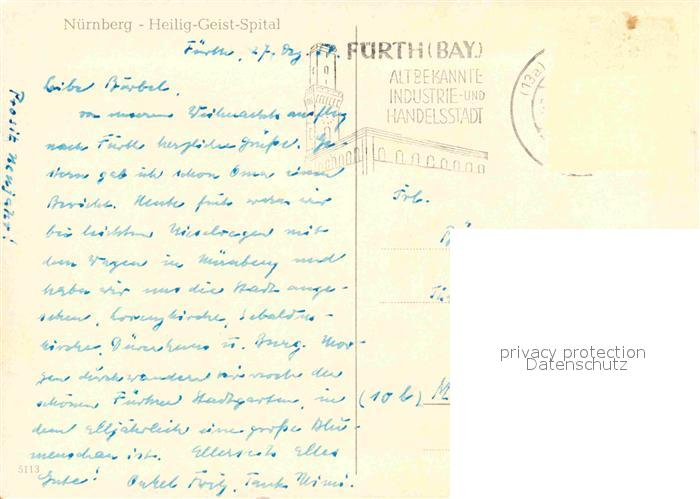 Nürnberg - Heilig-Geist-Spital
Fürth, 27. Dez.
FÜRTH (BAY.)
ALTBEKANNTE
INDUSTRIE- UND
HANDELSSTADT
(13a)
Liebe Bärbel,
von unserem Weihnachtsausflug
nach Fürth herzliche Grüße. Ge-
stern gab ich schon Oma einen
Bericht. Heute früh waren wir
bei leichtem Nieselregen mit
dem Wagen in Nürnberg und
haben wir uns die Stadt ange-
sehen, Lorenzkirche, Sebaldus-
kirche, Dürerhaus u. Burg. Mor-
gen durchwandern wir noch den
schönen Fürther Stadtgarten, in
dem alljährlich eine große Blu-
menschau ist. Allerseits Alles
Gute! Onkel Fritz, Tante Mimi.
Prosit Neujahr!
Frl.
(10b)
5113
privacy protection
Datenschutz